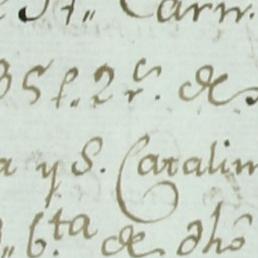 Carn
35 f. 2 rs. de
a y S. Catalin
6.ta de dho